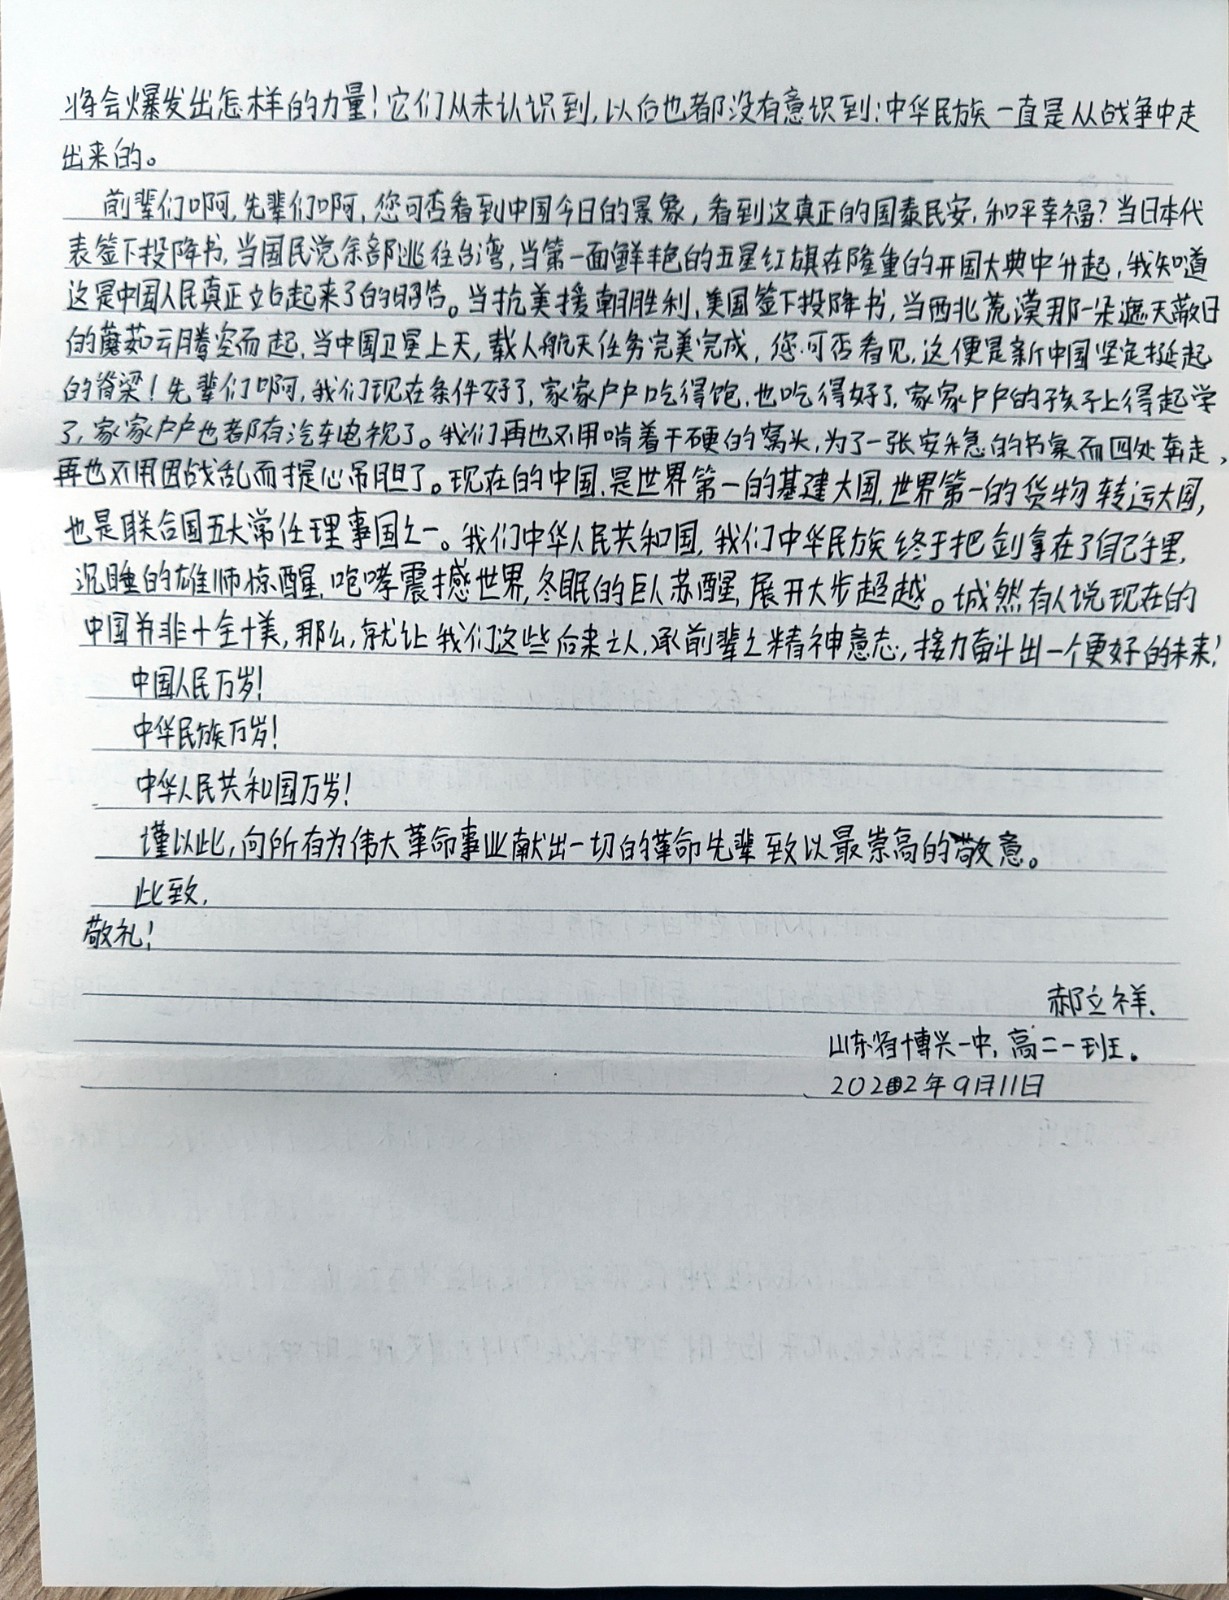 将会爆发出怎样的力量！它们从未认识到,以后也都没有意识到:中华民族一直是从战争中走
出来的。
前辈们啊,先辈们啊,您可否看到中国今日的景象,看到这真正的国泰民安,和平幸福？当日本代
表签下投降书,当国民党余部逃往台湾,当第一面鲜艳的五星红旗在隆重的开国大典中升起,我知道
这是中国人民真正站起来了的昭告。当抗美援朝胜利,美国签下投降书,当西北荒漠那一朵遮天蔽日
的蘑菇云腾空而起,当中国卫星上天,载人航天任务完美完成,您可否看见,这便是新中国坚定挺起
的脊梁！先辈们啊,我们现在条件好了,家家户户吃得饱,也吃得好了,家家户户的孩子上得起学
了,家家户户也都有汽车电视了。我们再也不用啃着干硬的窝头,为了一张安稳的书桌而四处奔走,
再也不用因战乱而提心吊胆了。现在的中国,是世界第一的基建大国,世界第一的货物转运大国,
也是联合国五大常任理事国之一。我们中华人民共和国,我们中华民族终于把剑拿在了自己手里,
沉睡的雄师惊醒,咆哮震撼世界,冬眠的巨人苏醒,展开大步超越。诚然有人说现在的
中国并非十全十美,那么,就让我们这些后来之人,承前辈之精神意志,接力奋斗出一个更好的未来！
中国人民万岁！
中华民族万岁！
中华人民共和国万岁！
谨以此,向所有为伟大革命事业献出一切的革命先辈致以最崇高的敬意。
此致,
敬礼！
郝立祥.
山东省博兴一中,高二一班。
2022年9月11日